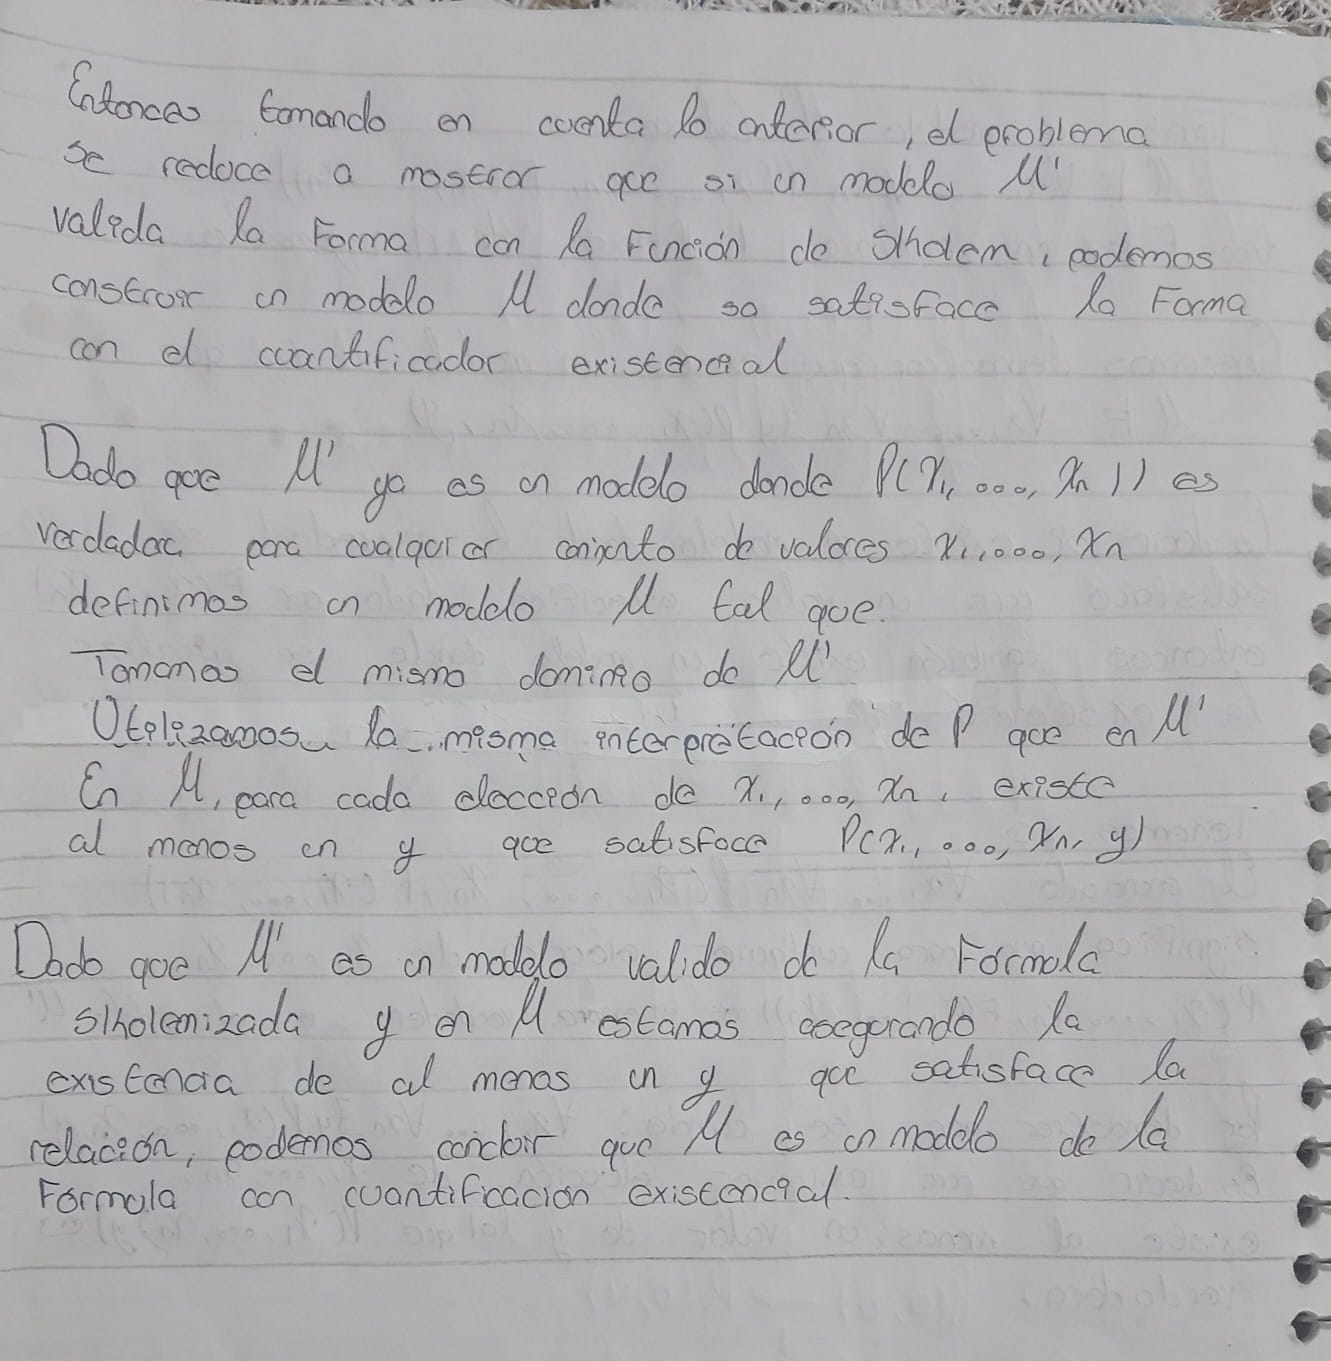 Entonces tomando en cuenta lo anterior, el problema
se reduce a mostrar que si un modelo M'
valida la Forma con la Función de Skholem, podemos
construir un modelo M donde se satisface la Forma
con el cuantificador existencial
Dado que M' ya es un modelo donde P(x1, ..., xn)) es
verdadera para cualquier conjunto de valores x1, ..., xn
definimos un modelo M tal que.
Tomamos el mismo dominio de M'
Utilizamos la misma interpretación de P que en M'
En M, para cada elección de x1, ..., xn, existe
al menos un y que satisface P(x1, ..., xn, y)
Dado que M' es un modelo valido de la Fórmula
skholemizada y en M estamos asegurando la
existencia de al menos un y que satisface la
relación, podemos concluir que M es un modelo de la
Fórmula con cuantificación existencial.